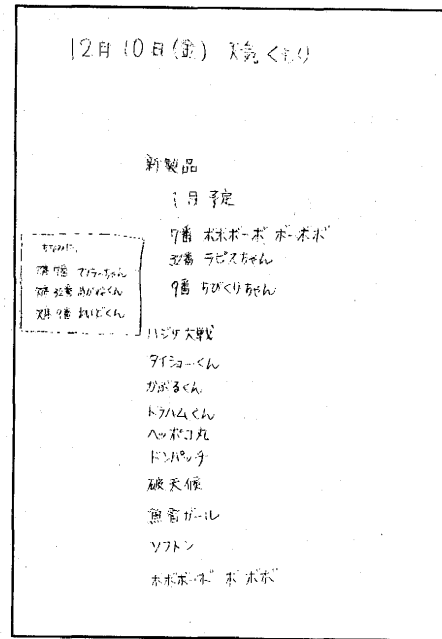 12月10日(金) 天気 くもり
新製品
1月予定
7番 ボボボーボ ボーボボ
32番 ラピスちゃん
9番 ちびくりちゃん
ちなみに、
7番
32番 めがねくん
9番
ハジケ大戦
タイショーくん
かぶるくん
トラハムくん
ヘッポコ丸
ドンパッチ
破天候
魚雷ガール
ソフトン
ボボボーボ ボ ボボ